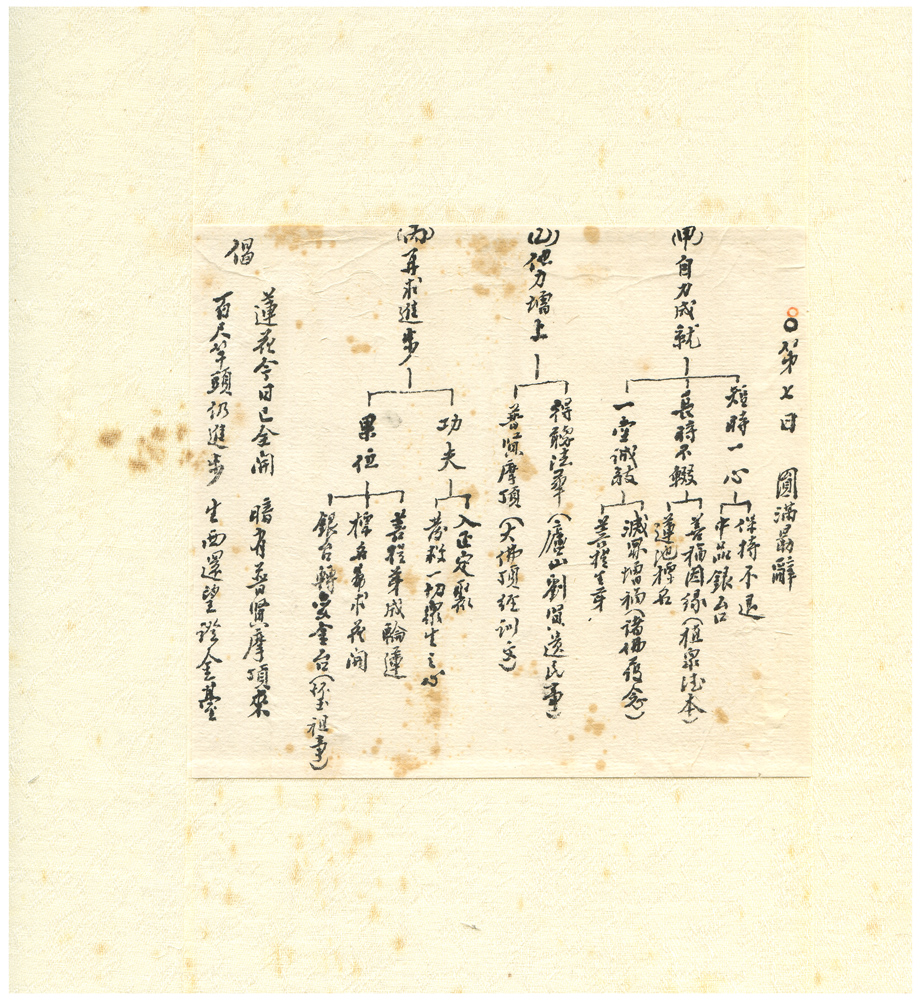 第七日　圓滿勗辭
(甲)自力成就
短時一心
保持不退
中品銀台
長時不輟
善福因緣(植眾德本)
蓮池標名
一堂誠敬
滅罪增福(諸佛護念)
菩提生芽
(乙)他力增上
得聆法華(廬山劉賢遺民事)
普賢摩頂(大佛頂經訓文)
(丙)再求進步
功夫
入正定聚
發救一切眾生之心
果位
菩提芽成輪蓮
標名要求花開
銀台轉変金台(瑩祖事)
偈
蓮花今日已全開　暗有普賢摩頂來
百尺竿頭仍進步　生西還望證金臺